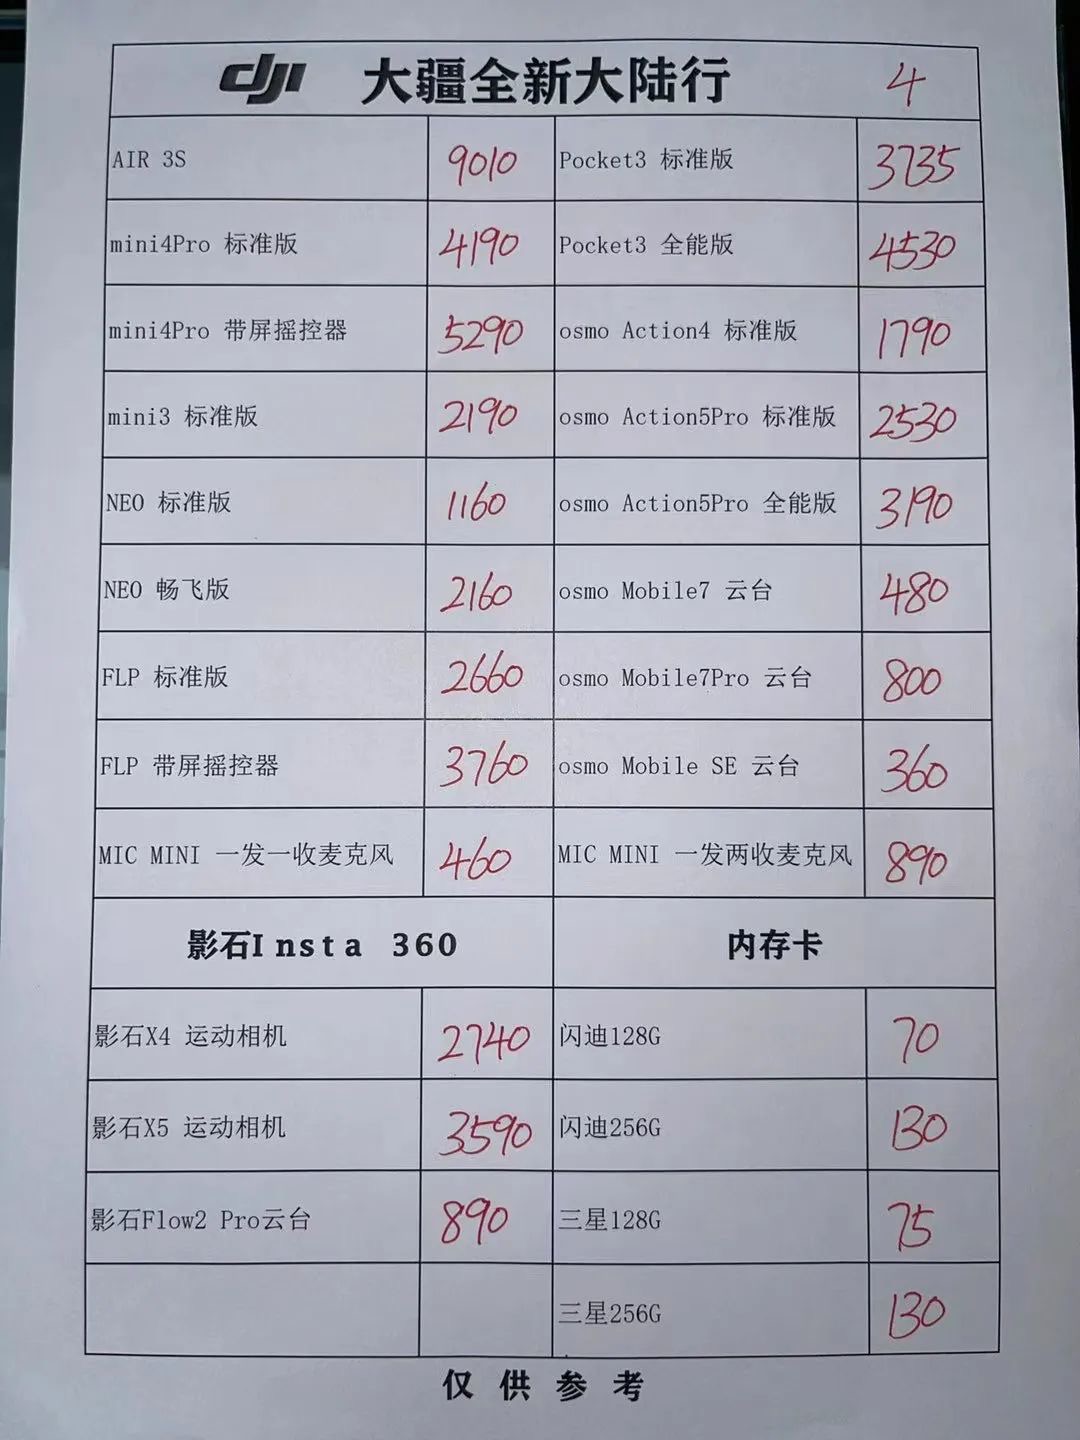 dji 大疆全新大陆行 4
AIR 3S 9010 Pocket3 标准版 3735
mini4Pro 标准版 4190 Pocket3 全能版 4530
mini4Pro 带屏摇控器 5290 osmo Action4 标准版 1790
mini3 标准版 2190 osmo Action5Pro 标准版 2530
NEO 标准版 1160 osmo Action5Pro 全能版 3190
NEO 畅飞版 2160 osmo Mobile7 云台 480
FLP 标准版 2660 osmo Mobile7Pro 云台 800
FLP 带屏摇控器 3760 osmo Mobile SE 云台 360
MIC MINI 一发一收麦克风 460 MIC MINI 一发两收麦克风 890
影石Insta 360 内存卡
影石X4 运动相机 2740 闪迪128G 70
影石X5 运动相机 3590 闪迪256G 130
影石Flow2 Pro云台 890 三星128G 75
三星256G 130
仅供参考